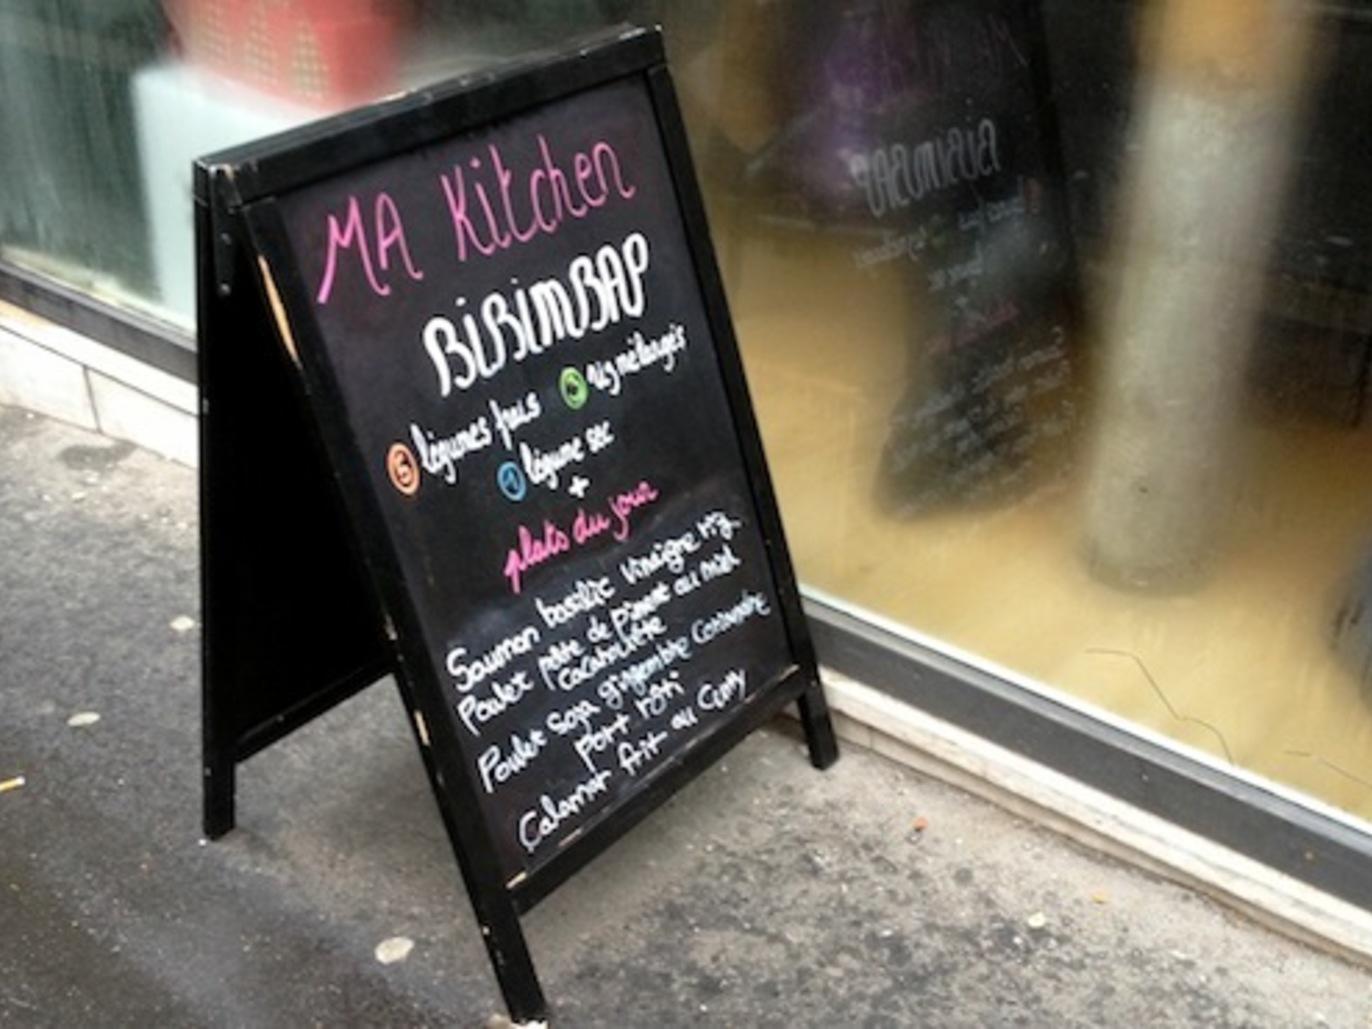 MA Kitchen
BiBimBAP
5 légumes frais 6 riz mélangés
1 légume sec
+
plats du jour
Saumon basilic vinaigre riz
Poulet pâte de Piment au miel
cacahuète
Poulet Soja gingembre Coriandre
Porc rôti
Calamar frit au Curry